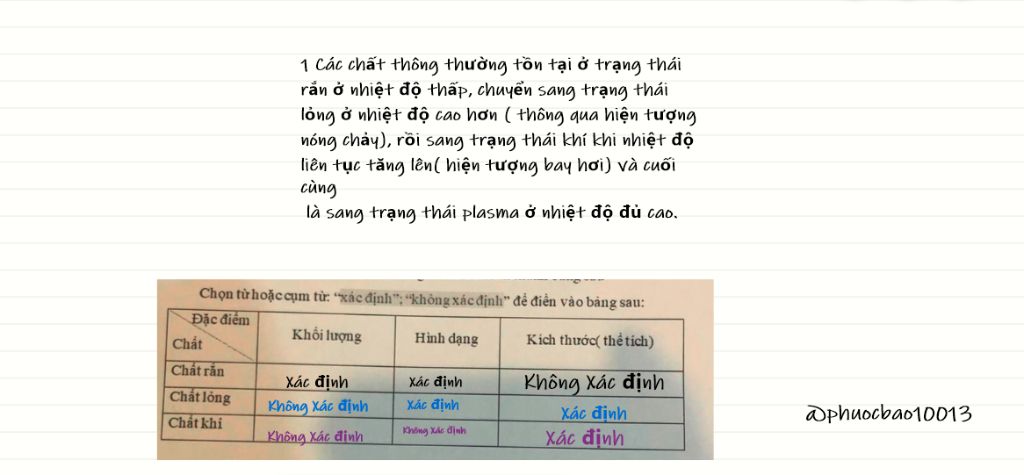 1 Các chất thông thường tồn tại ở trạng thái
rắn ở nhiệt độ thấp, chuyển sang trạng thái
lỏng ở nhiệt độ cao hơn ( thông qua hiện tượng
nóng chảy), rồi sang trạng thái khí khi nhiệt độ
liên tục tăng lên( hiện tượng bay hơi) và cuối
cùng
là sang trạng thái plasma ở nhiệt độ đủ cao.
Chọn từ hoặc cụm từ: “xác định”; “không xác định” để điền vào bảng sau:
Đặc điểm
Chất
Khối lượng
Hình dạng
Kích thước( thể tích)
Chất rắn
Xác định
Xác định
Không Xác định
Chất lỏng
Không Xác định
Xác định
Xác định
Chất khí
Không Xác định
Không Xác định
Xác định
@phuocbao10013